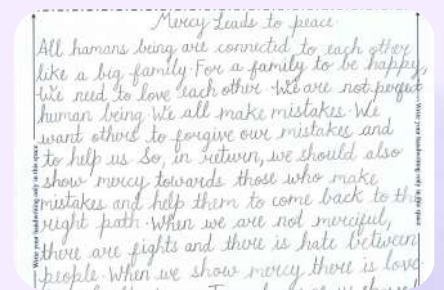 Mercy Leads to peace.
All hamans being are connected to each other
like a big family. For a family to be happy,
We need to love each other. We are not perfect
human being. We all make mistakes. We
want others to forgive our mistakes and
to help us So, in return, we should also
show mercy towards those who make
mistakes and help them to come back to the
right path. When we are not merciful,
there are fights and there is hate between
people. When we show mercy there is love
Write your handwriting only in this space
Write your handwriting only in this space